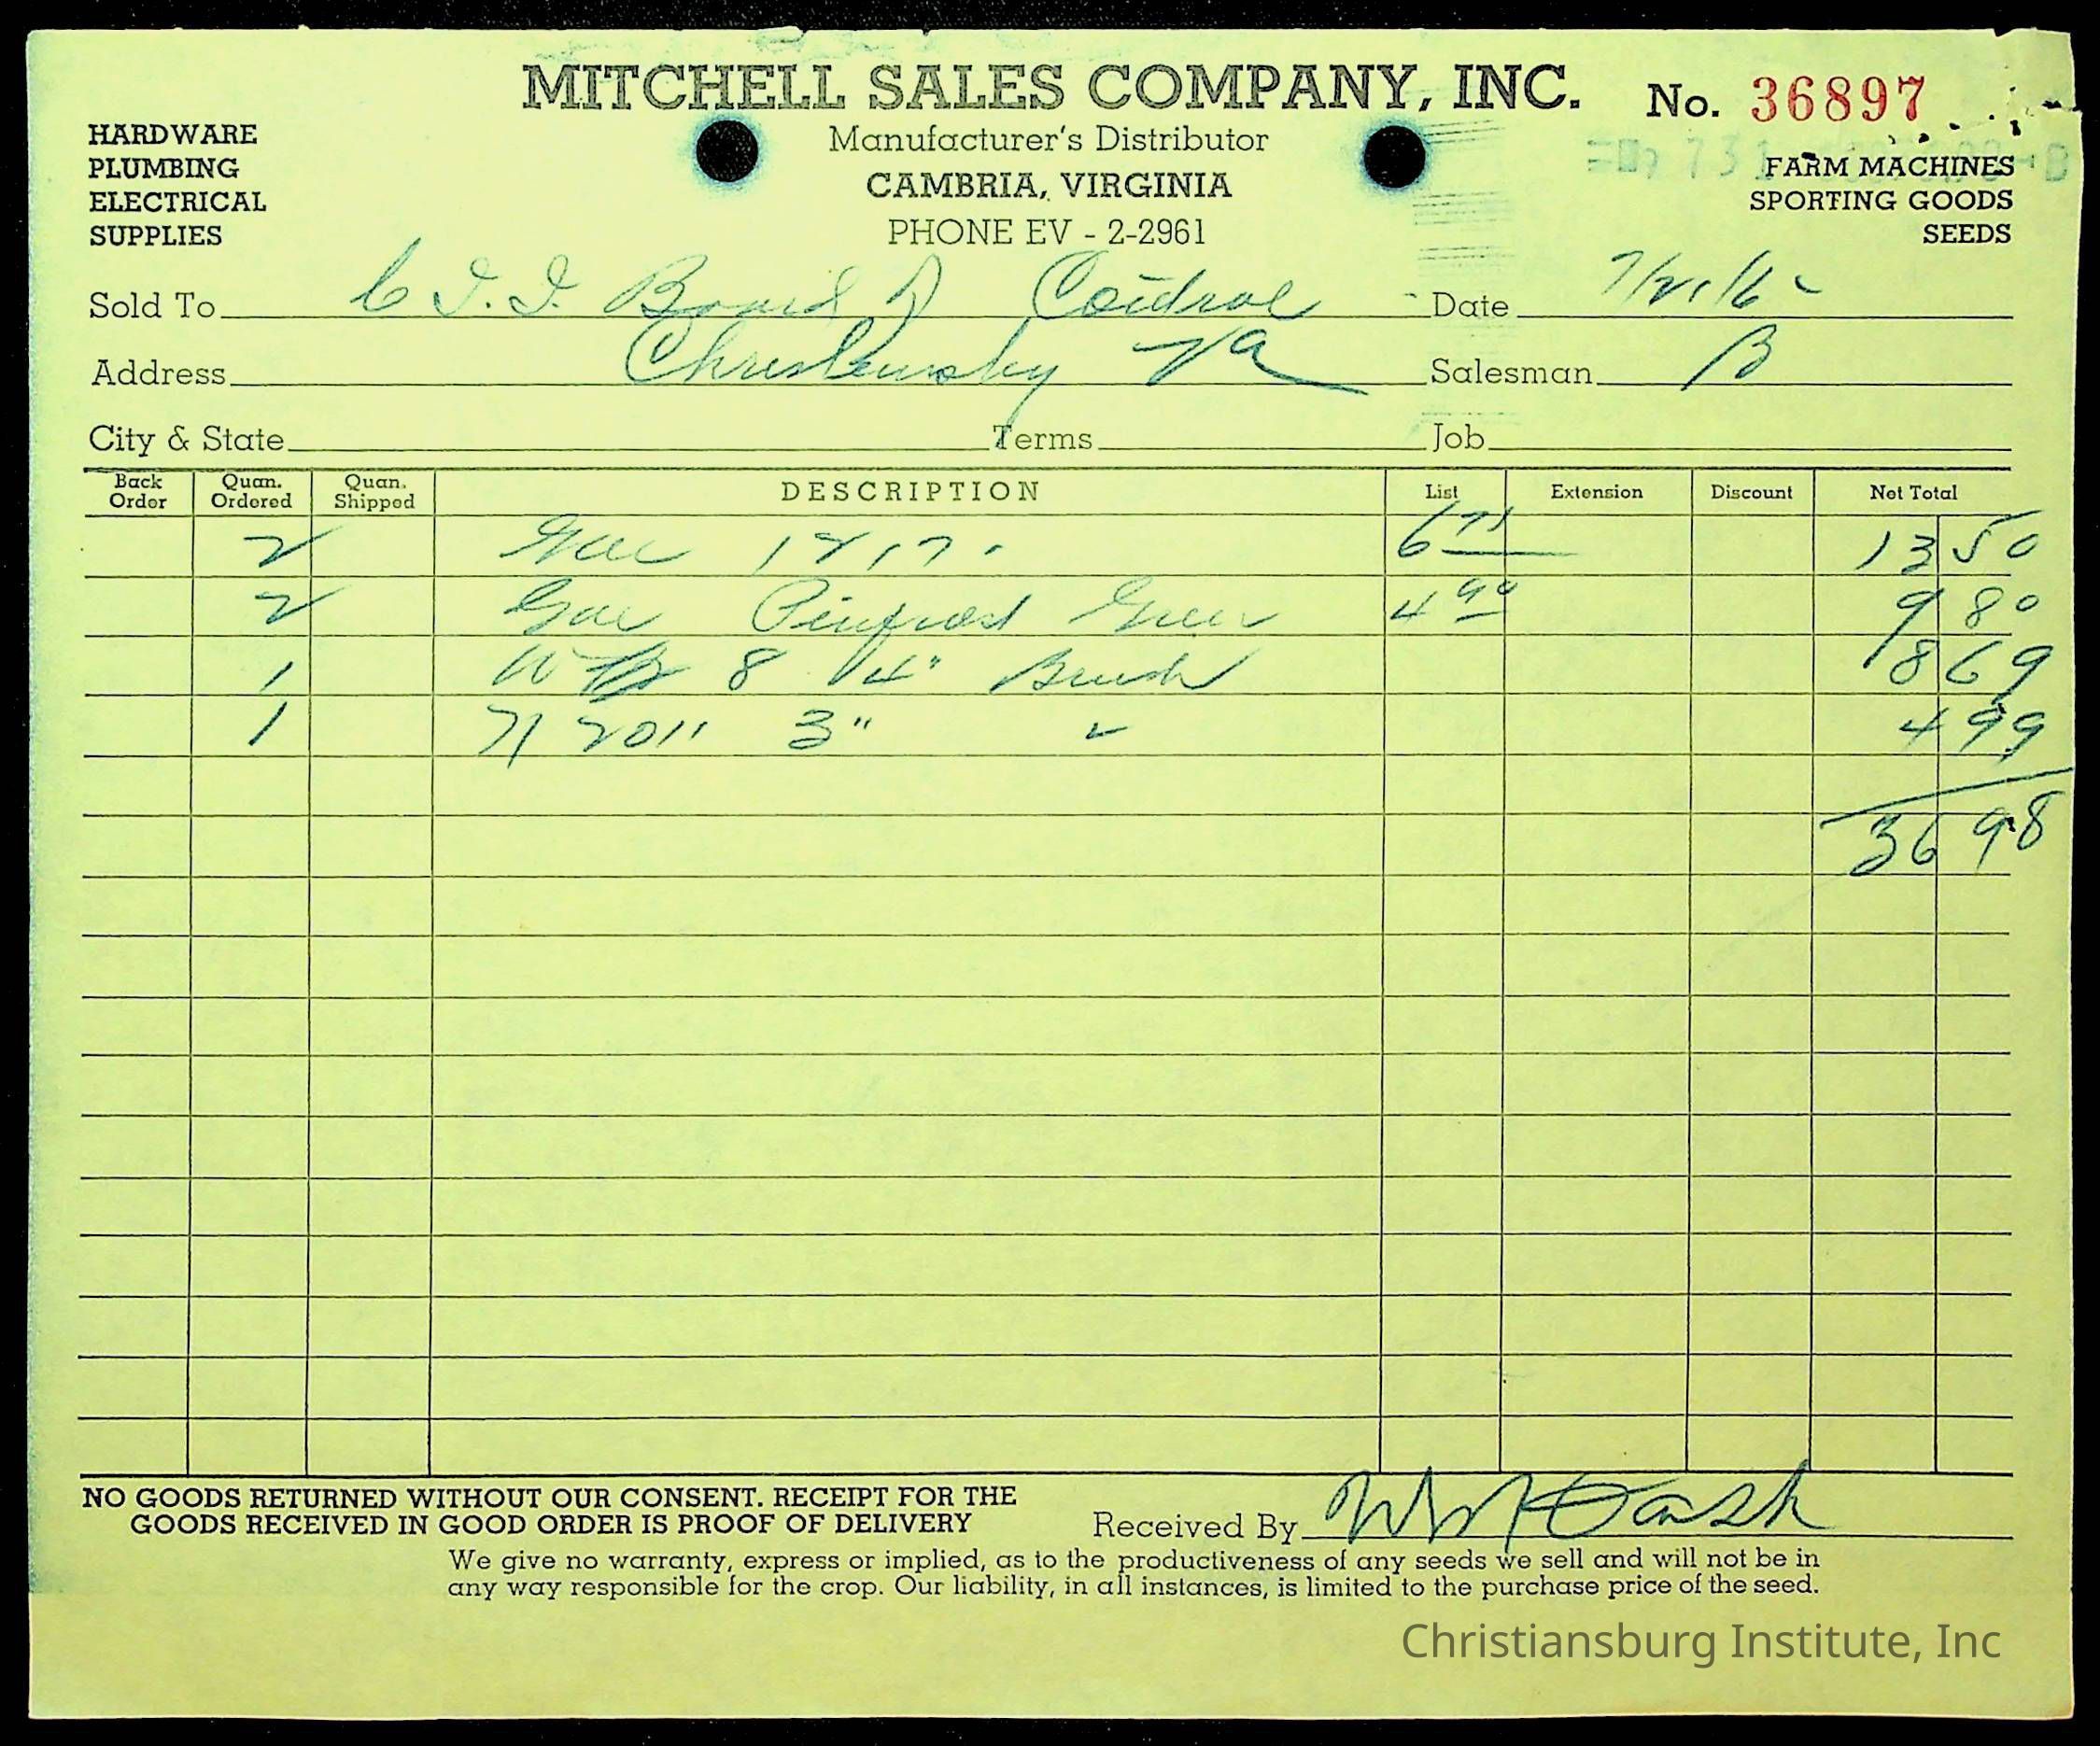 MITCHELL SALES COMPANY, INC.
No. 36897
HARDWARE
PLUMBING
ELECTRICAL
SUPPLIES
Manufacturer's Distributor
CAMBRIA, VIRGINIA
PHONE EV - 2-2961
FARM MACHINES
SPORTING GOODS
SEEDS
Sold To C. I. I. Board of Control Date
Address Christiansburg Va Salesman B
City & State Terms Job
Back Order Quan. Ordered Quan. Shipped DESCRIPTION List Extension Discount Net Total
2 Gal 1217 6 75 13 50
2 Gal Green 4 90 9 80
1 8 4" Brush 8 69
1 2011 3" " 4 99
36 98
NO GOODS RETURNED WITHOUT OUR CONSENT. RECEIPT FOR THE
GOODS RECEIVED IN GOOD ORDER IS PROOF OF DELIVERY
Received By Wm Cash
We give no warranty, express or implied, as to the productiveness of any seeds we sell and will not be in
any way responsible for the crop. Our liability, in all instances, is limited to the purchase price of the seed.
Christiansburg Institute, Inc